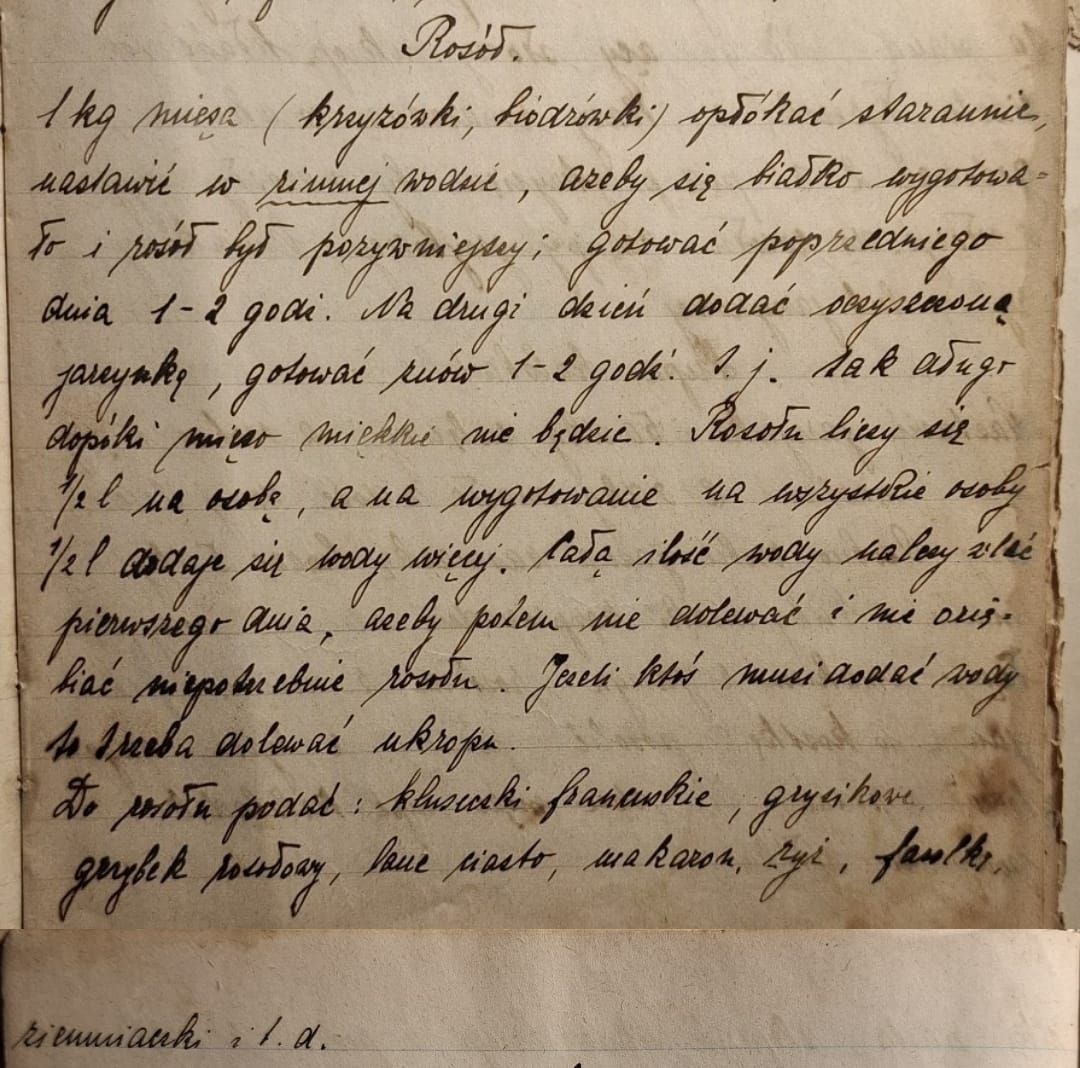 Rosół.
1 kg mięsa (krzyżówki, biodrówki) opłókać starannie,
nastawić w zimnej wodzie, ażeby się białko wygotowa=
ło i rosół był pożywniejszy; gotować poprzedniego
dnia 1-2 godz. Na drugi dzień dodać oczyszczoną
jarzynkę, gotować znów 1-2 godz. t. j. tak długo
dopóki mięso miękkie nie będzie. Rosołu liczy się
1/2 l na osobę, a na wygotowanie na wszystkie osoby
1/2 l dodaje się wody więcej. Całą ilość wody należy wlać
pierwszego dnia, ażeby potem nie dolewać i nie ozię-
biać niepotrzebnie rosołu. Jeżeli ktoś musi dodać wody
to trzeba dolewać ukropu.
Do rosołu podać: kluseczki francuskie, grysikowe
grzybek rosołowy, lane ciasto, makaron, ryż, fasolkę,
ziemniaczki i t. d.